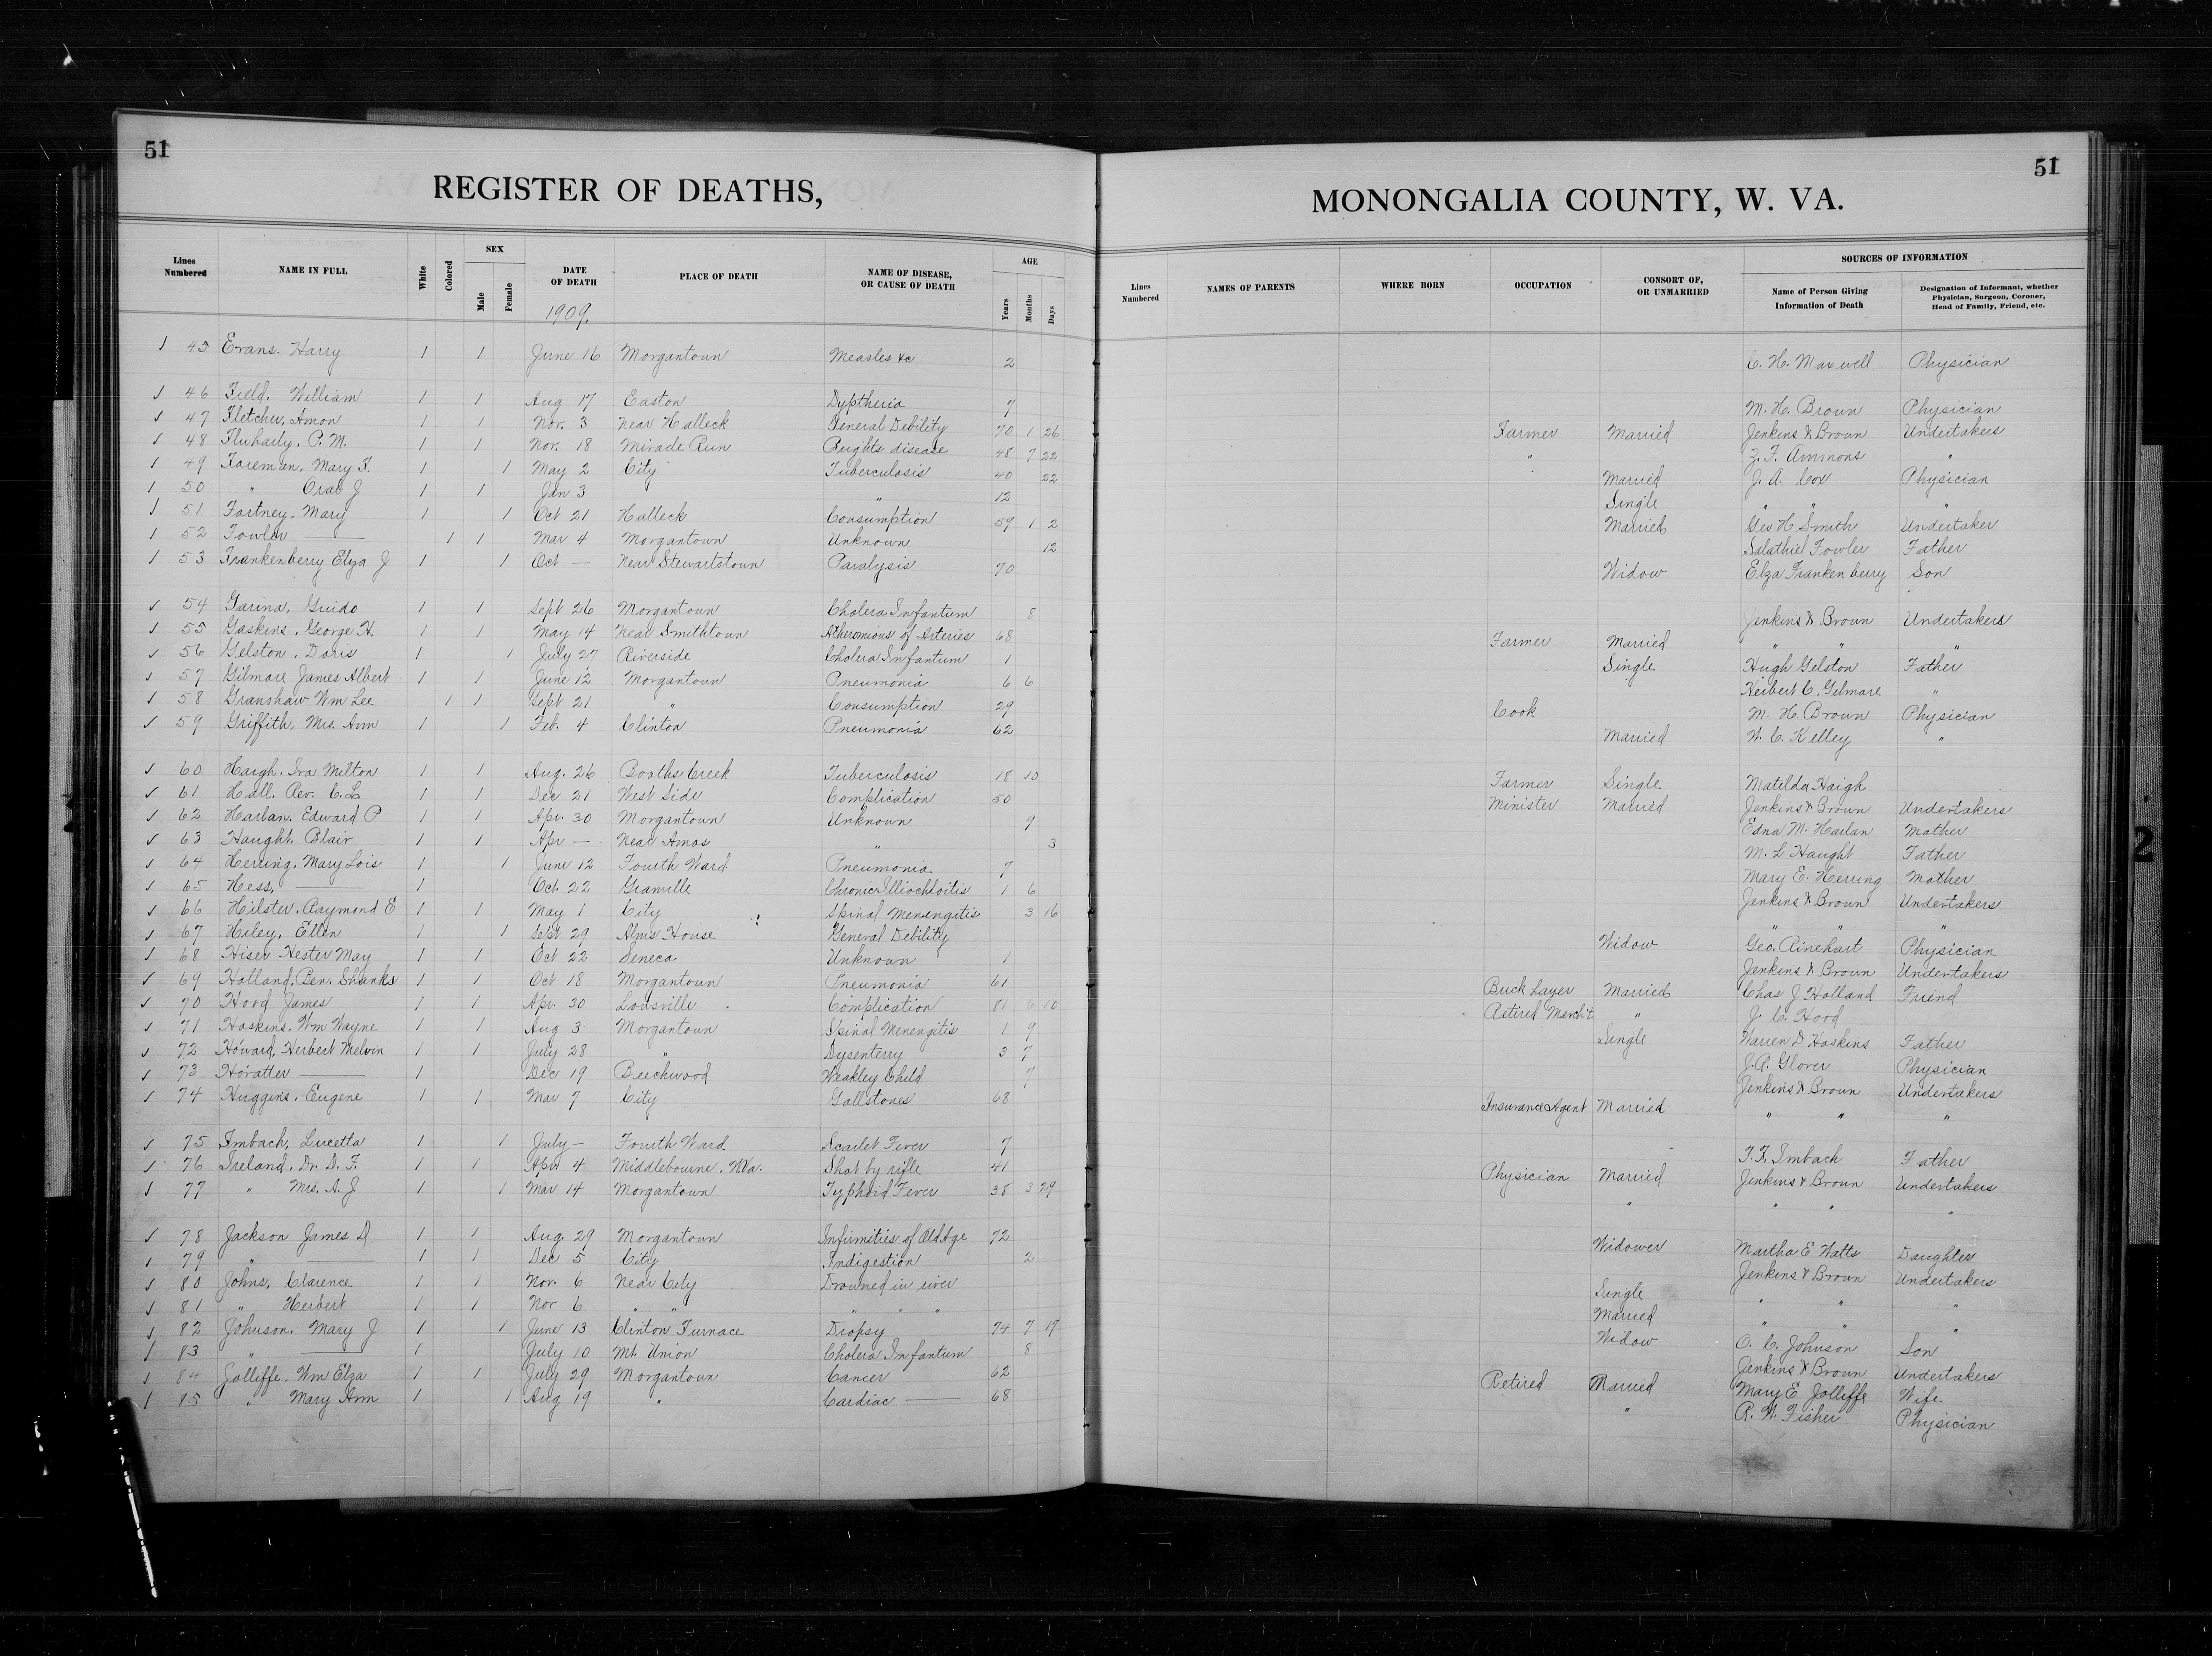 51
51
REGISTER OF DEATHS,
MONONGALIA COUNTY, W. VA.
Lines Numbered NAME IN FULL White Colored SEX Male Female DATE OF DEATH PLACE OF DEATH NAME OF DISEASE, OR CAUSE OF DEATH AGE Years Months Days Lines Numbered NAMES OF PARENTS WHERE BORN OCCUPATION CONSORT OF, OR UNMARRIED SOURCES OF INFORMATION Name of Person Giving Information of Death Designation of Informant, whether Physician, Surgeon, Coroner, Head of Family, Friend, etc.
1909.
45 Evans. Harry 1 1 June 16 Morgantown Measles &c 2 C. H. Maxwell Physician
46 Field. William 1 1 Aug 17 Easton Dyptheria 7 M. H. Brown Physician
47 Fletcher, Amon 1 1 Nov. 3 Near Halleck General Debility 70 1 26 Farmer Married Jenkins & Brown Undertakers
48 Fluharty. P. M. 1 1 Nov. 18 Miracle Run Brights disease 48 7 22 " Z. F. Ammons "
49 Foreman, Mary F. 1 1 May 2 City Tuberculosis 40 22 Married J. A. Cox Physician
50 " J 1 1 Jan 3 " 12 Single " " "
51 Fortney. Mary 1 1 Oct 21 Halleck Consumption 59 1 2 Married Geo H Smith Undertaker
52 Fowler — 1 1 Mar 4 Morgantown Unknown 12 Salathiel Fowler Father
53 Frankenberry Elza J 1 1 Oct — Near Stewartstown Paralysis 70 Widow Elza Frankenberry Son
54 Garina, Guido 1 1 Sept 26 Morgantown Cholera Infantum 8 Jenkins & Brown Undertakers
55 Gaskins, George H. 1 1 May 14 Near Smithtown Atheromious of Arteries 68 Farmer Married " " "
56 Gelston, Doris 1 1 July 27 Riverside Cholera Infantum 1 Single Hugh Gelston Father
57 Gilmore James Albert 1 1 June 12 Morgantown Pneumonia 6 6 Heibert C. Gilmore "
58 Granshaw Wm Lee 1 1 Sept 21 " Consumption 29 Cook M. H. Brown Physician
59 Griffith, Mrs. Ann 1 1 Feb. 4 Clinton Pneumonia 62 Married W. C. Kelley "
60 Haigh. Ira Milton 1 1 Aug. 26 Booths Creek Tuberculosis 18 10 Farmer Single Matilda Haigh
61 Hall. Rev. C. L. 1 1 Dec 21 West Side Complication 50 Minister Married Jenkins & Brown Undertakers
62 Harlan. Edward P 1 1 Apr. 30 Morgantown Unknown 9 Edna M. Harlan Mother
63 Haught. Blair 1 1 Apr — Near Amos " 3 M. L Haught Father
64 Herring. Mary Lois 1 1 June 12 Fourth Ward Pneumonia 7 Mary E. Herring Mother
65 Hess, — 1 Oct. 22 Granville Chronic 1 6 Jenkins & Brown Undertakers
66 Hilster. Raymond E 1 1 May 1 City Spinal Menengitis 3 16 " " "
67 Hiley, Ellen 1 1 Sept 29 Alms House General Debility Widow Geo. Rinehart Physician
68 Hiser Hester May 1 1 Oct 22 Seneca Unknown 1 Jenkins & Brown Undertakers
69 Holland, Ben. Shanks 1 1 Oct 18 Morgantown Pneumonia 61 Buck Layer Married Chas J Holland Friend
70 Hood James 1 1 Apr. 30 Louisville Complication 81 6 10 Retired Merch't " J. C. Hood
71 Hoskins. Wm Wayne 1 1 Aug 3 Morgantown Spinal Menengitis 1 9 Single Warren D Hoskins Father
72 Howard, Herbert Melvin 1 1 July 28 " Dysenterry 3 7 J. R. Glover Physician
73 Horatter — 1 Dec 19 Beechwood Weakley Child 7 Jenkins & Brown Undertakers
74 Huggins. Eugene 1 1 Mar 7 City Gallstones 68 Insurance Agent Married " " "
75 Imbach, Lucetta 1 1 July — Fourth Ward Scarlet Fever 7 T. F. Imbach Father
76 Ireland. Dr. D. F. 1 1 Apr. 4 Middlebourne. W.Va. Shot by rifle 41 Physician Married Jenkins & Brown Undertakers
77 " Mrs. A. J. 1 1 Mar 14 Morgantown Typhoid Fever 38 3 29 " " " "
78 Jackson James D 1 1 Aug. 29 Morgantown Infirmities of Old Age 72 Widower Martha E Watts Daughter
79 " — 1 1 Dec 5 City Indigestion 2 Jenkins & Brown Undertakers
80 Johns, Clarence 1 1 Nov. 6 Near City Drowned in river Single " " "
81 " Herbert 1 1 Nov 6 " " " " " Married " " "
82 Johnson. Mary J 1 1 June 13 Clinton Furnace Dropsy 74 7 17 Widow O. C. Johnson Son
83 " — 1 July 10 Mt. Union Cholera Infantum 8 Jenkins & Brown Undertakers
84 Jolliffe. Wm Elza 1 1 July 29 Morgantown Cancer 62 Retired Married Mary E Jolliffe Wife
85 " Mary Ann 1 1 Aug 19 " Cardiac — 68 " R. W. Fisher Physician